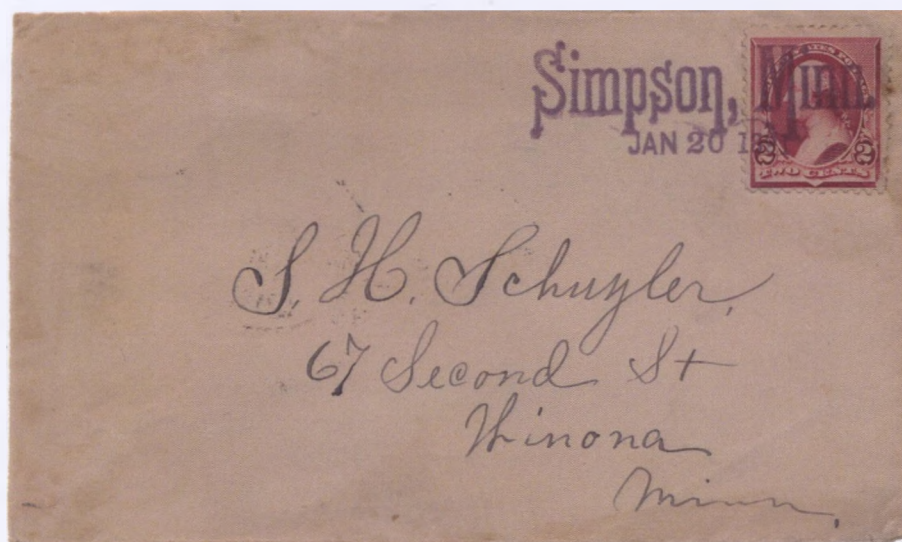 Simpson, Minn.
JAN 20
2 2
TWO CENTS
S. H. Schuyler,
67 Second St
Winona
Minn.